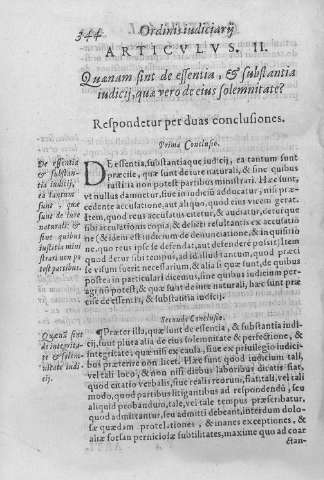 344 Ordinis iudiciarij
ARTICVLVS, II.
Quænam sint de essentia, & substantia
iudicij, quæ vero de eius solemnitate?
Respondetur per duas conclusiones.
Prima Conclusio.
De essentia
& substan-
tia iudicij,
ea tantum
sunt, quæ
sunt de iure
naturali: &
sine quibus
iustitia mini
strari non po
test partibus.
DE essentia, substantiaque iudicij, ea tantum sunt
præcise, quæ sunt de iure naturali, & sine quibus
iustitia non potest partibus ministrari. Hæc sunt,
vt nullus damnetur, siue in iudiciū adducatur, nisi præ-
cedente accusatione, aut aliquo, quod eius vicem gerat.
Item, quod reus accusatus citetur, & audiatur, detur que
sibi accusationis copia, & delicti resultantis ex accusatio
ne (& idem est iudicium de denunciatione, & in quisitio
ne) quo reus ipse se defendat, aut defendere possit; Item
quod detur sibi tempus, ad id illud tantum, quod præci
se visum fuerit necessarium, & alia si quæ sunt, de quibus
postea in particulari dicemus, sine quibus iudicium per-
agi nō potest, & quæ sunt de iure naturali, hæc sunt præ
cise de essentia, & substantia iudicij.
Secunda Conclusio.
Quænā sint
de integrita-
te & solem-
nitate iudi-
cij.
¶Præter illa, quæ sunt de essentia, & substantia iudi-
cij, sunt pluta alia de eius solemnitate & perfectione, &
integritate: quæ nisi ex causa, siue ex priuilegio iudici-
bus præterire non licet. Hæc sunt quod iudicium tali,
vel tali loco, & non nisi diebus laboribus dicatis fiat,
quod citatio verbalis, siue realis reorum, fiat, tali, vel tali
modo, quod partibus litigantibus ad respondendū, seu
aliquid probandum, tale, vel tale tempus præscribatur,
quod admittantur, seu admitti debeant, interdum dolo-
sæ quædam protelationes, & inanes exceptiones, &
aliæ forsan perniciosæ subtilitates, maxime quo ad coar
ctan-